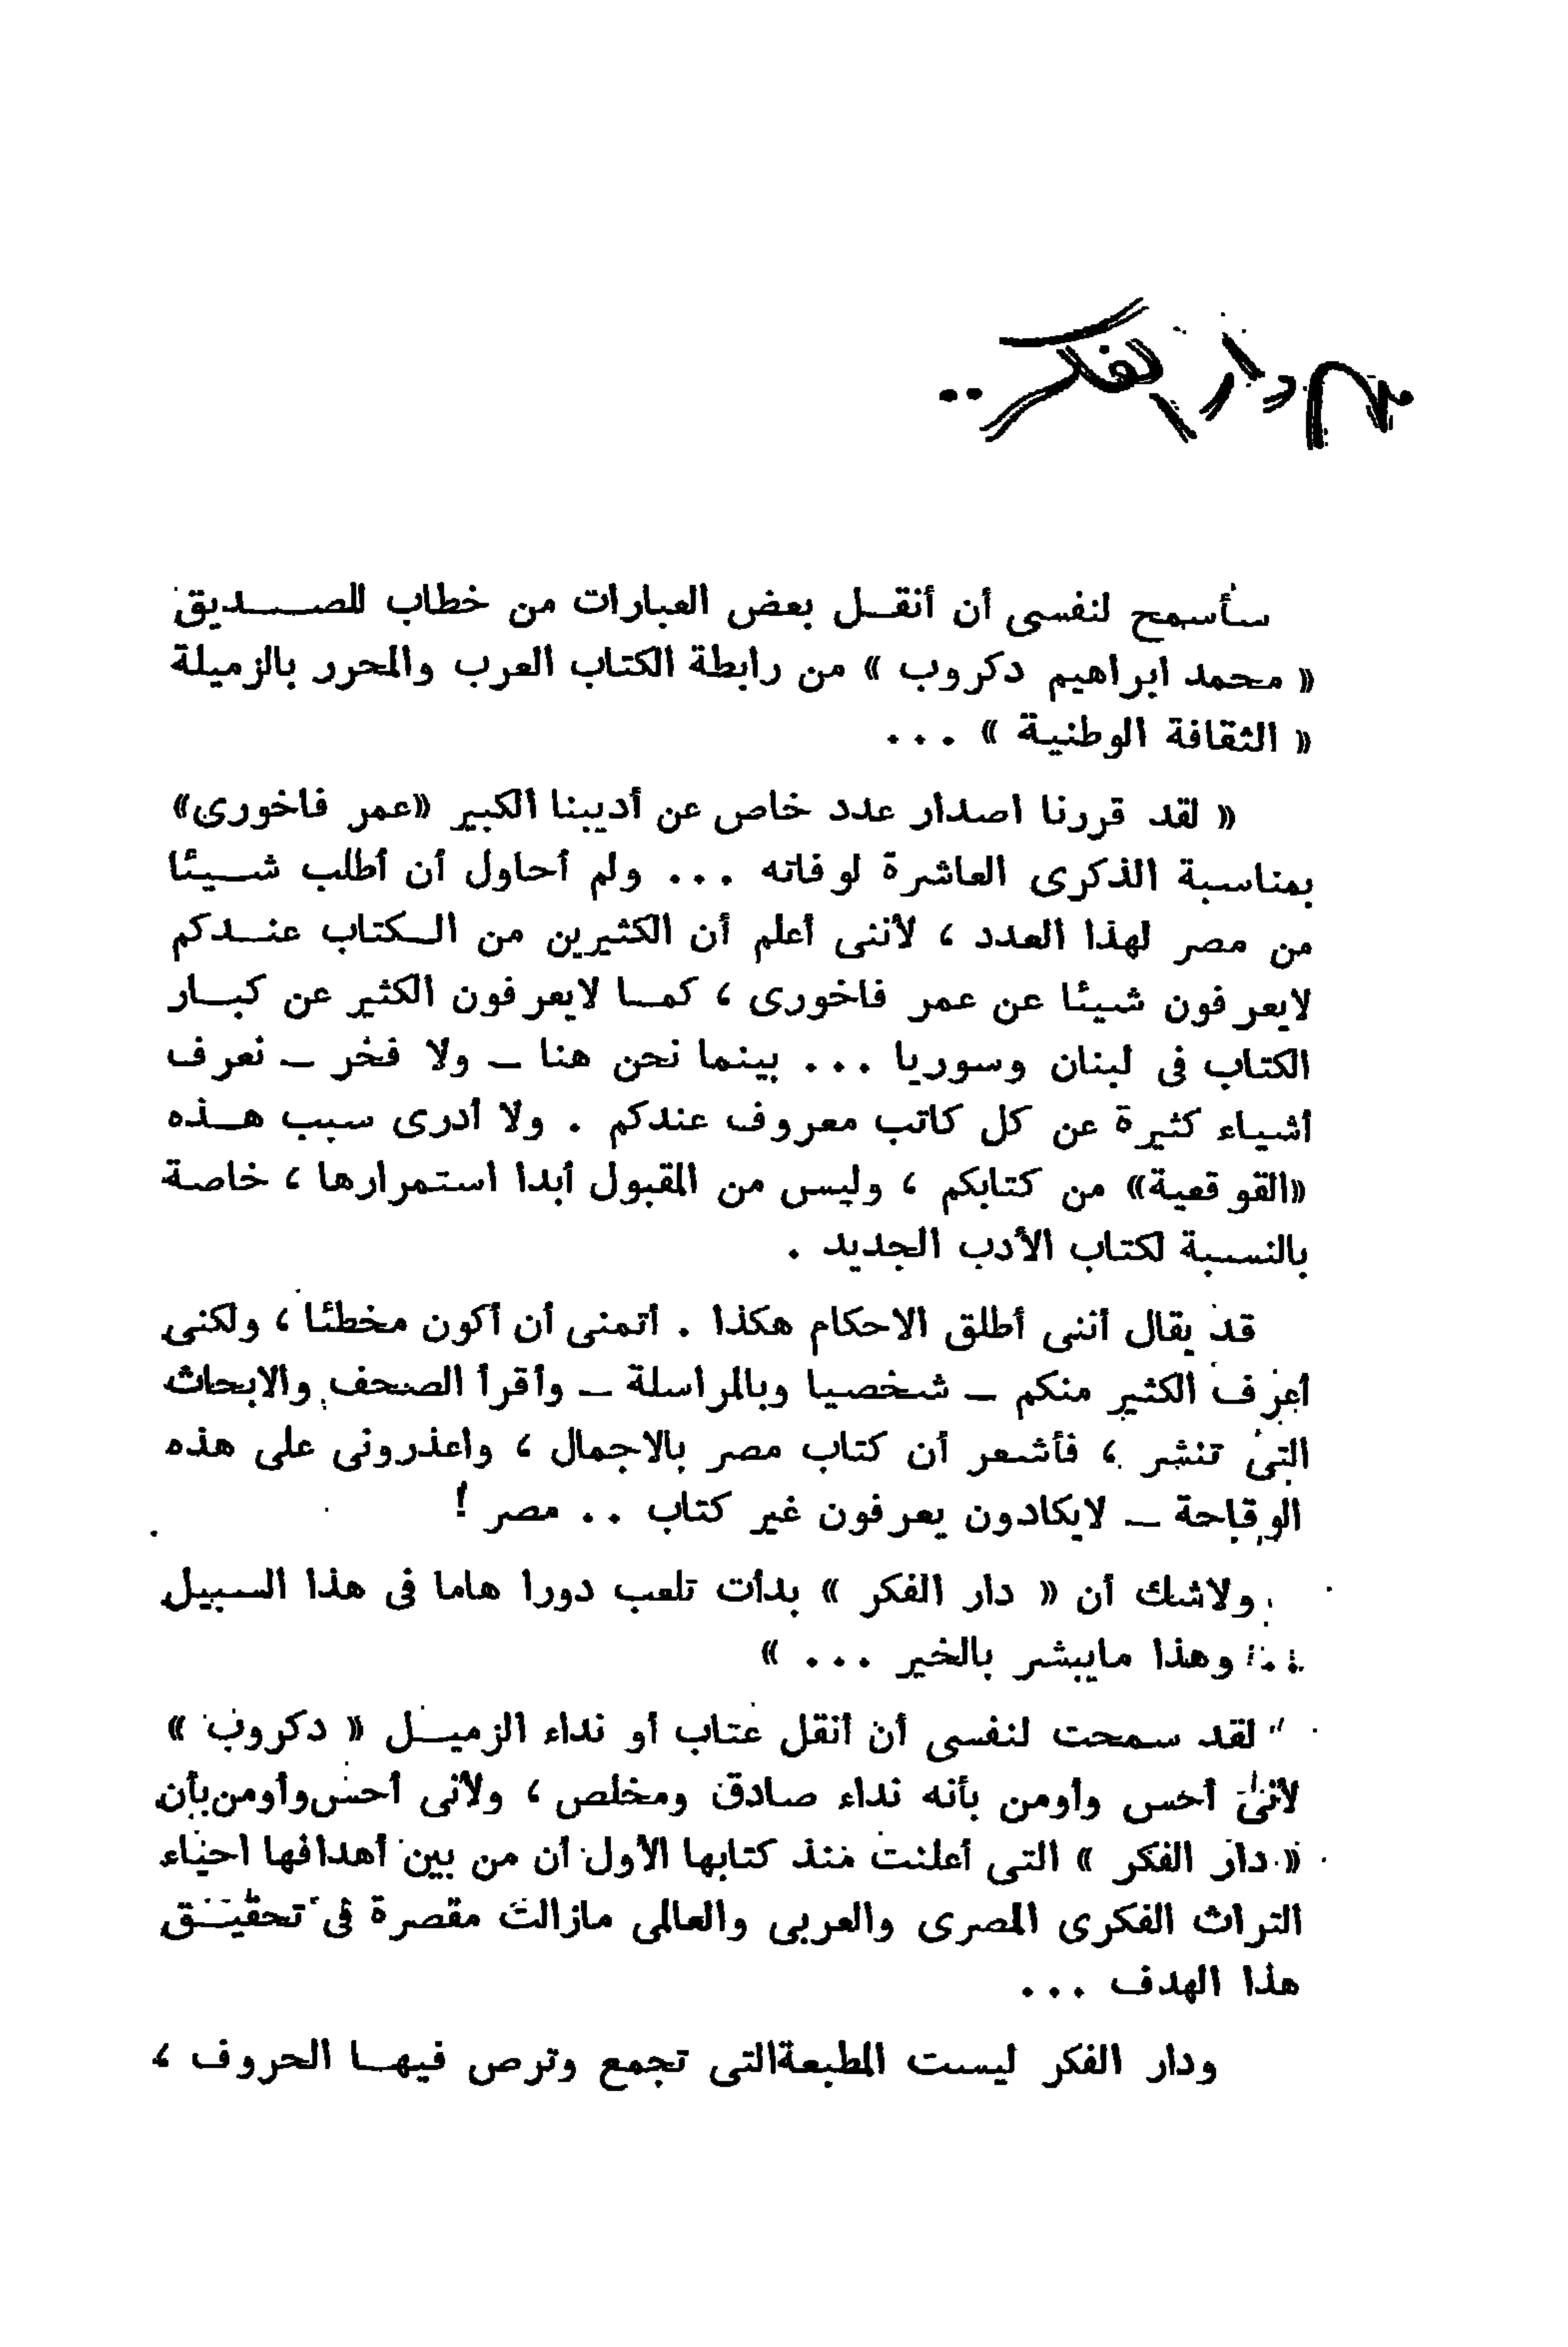 مع دار الفكر ..
سأسمح لنفسى أن أنقل بعض العبارات من خطاب للصديق
« محمد ابراهيم دكروب » من رابطة الكتاب العرب والمحرر بالزميلة
« الثقافة الوطنية » ...
« لقد قررنا اصدار عدد خاص عن أديبنا الكبير «عمر فاخورى»
بمناسبة الذكرى العاشرة لوفاته ... ولم أحاول أن أطلب شيئا
من مصر لهذا العدد ، لأننى أعلم أن الكثيرين من الكتاب عندكم
لايعرفون شيئا عن عمر فاخورى ، كما لايعرفون الكثير عن كبار
الكتاب فى لبنان وسوريا ... بينما نحن هنا – ولا فخر – نعرف
أشياء كثيرة عن كل كاتب معروف عندكم . ولا أدرى سبب هذه
«القوقعية» من كتابكم ، وليس من المقبول أبدا استمرارها ، خاصة
بالنسبة لكتاب الأدب الجديد .
قد يقال أننى أطلق الاحكام هكذا . أتمنى أن أكون مخطئا ، ولكنى
أعرف الكثير منكم – شخصيا وبالمراسلة – وأقرأ الصحف والابحاث
التى تنشر ، فأشعر أن كتاب مصر بالاجمال ، واعذرونى على هذه
الوقاحة – لايكادون يعرفون غير كتاب .. مصر !
ولاشك أن « دار الفكر » بدأت تلعب دورا هاما فى هذا السبيل
... وهذا مايبشر بالخير ... »
لقد سمحت لنفسى أن أنقل عتاب أو نداء الزميل « دكروب »
لأننى أحس وأومن بأنه نداء صادق ومخلص ، ولأنى أحس وأومن بأن
« دار الفكر » التى أعلنت منذ كتابها الأول أن من بين أهدافها احياء
التراث الفكرى المصرى والعربى والعالمى مازالت مقصرة فى تحقيق
هذا الهدف ...
ودار الفكر ليست المطبعة التى تجمع وترص فيها الحروف ،